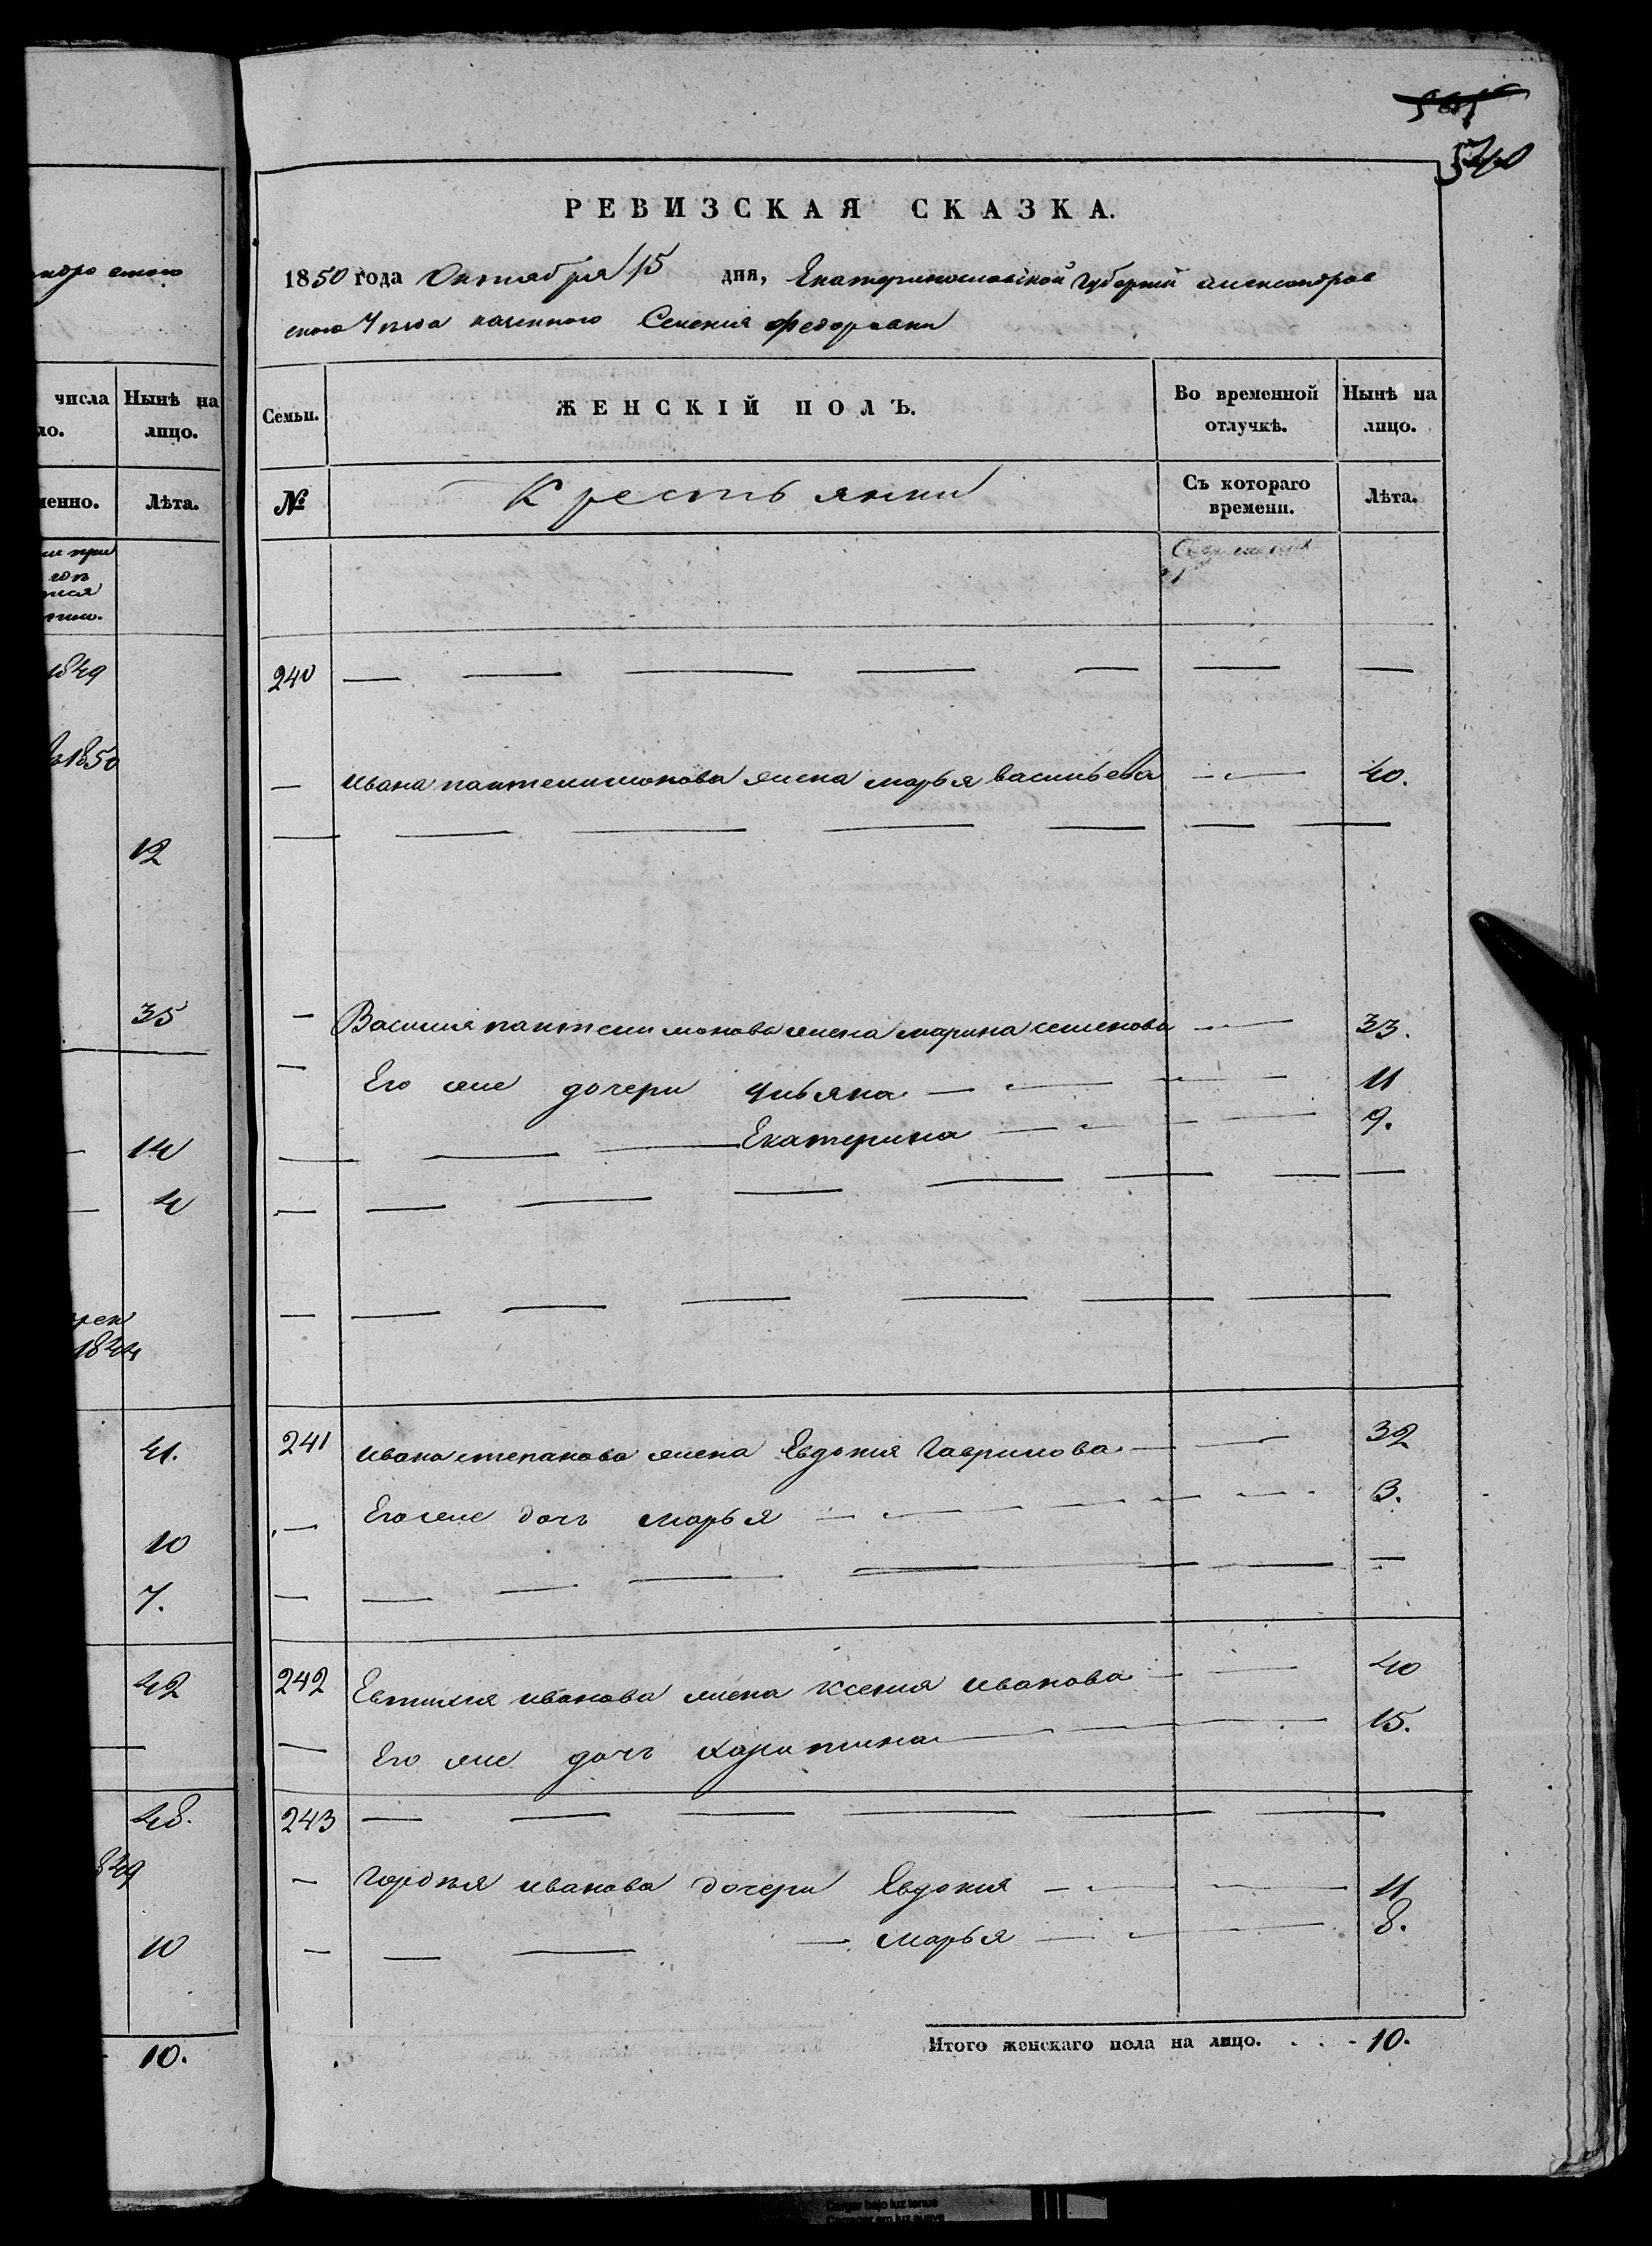 540
РЕВИЗСКАЯ СКАЗКА.
1850 года Октября 15 дня, Екатеринославской Губернии александров
ского Уезда казенного Селения федоровки
числа
Нынѣ на
ло.
лицо.
менно.
Лѣта.
1849
1850
12
35
14
4
1844
41.
10
7.
42
48.
10
10.
Семьи.
ЖЕНСКІЙ ПОЛЪ.
Во временной
отлучкѣ.
Нынѣ на
лицо.
№
Крестьянки
Съ котораго
времени.
Лѣта.
240 — — — — — — —
— Ивана пантелимонова жена марья васильева — 40.
— — — — — — —
— Василия пантелимонова жена марина семенова — 33.
— Его же дочери Ульяна — — — 11
— — — Екатерина — — — 9.
— — — — — — — —
— — — — — — —
241 ивана степанова жена Евдокия Гаврилова — — 32
— Его же дочь марья — — — 3.
— — — — — — — —
242 Евтихия иванова жена ксения иванова — — 40
— Его же дочь харитина — — 15.
243 — — — — — —
— Гордея иванова дочери Евдокия — — — 11
— — — — марья — — — 8.
Итого женскаго пола на лицо. . . - 10.